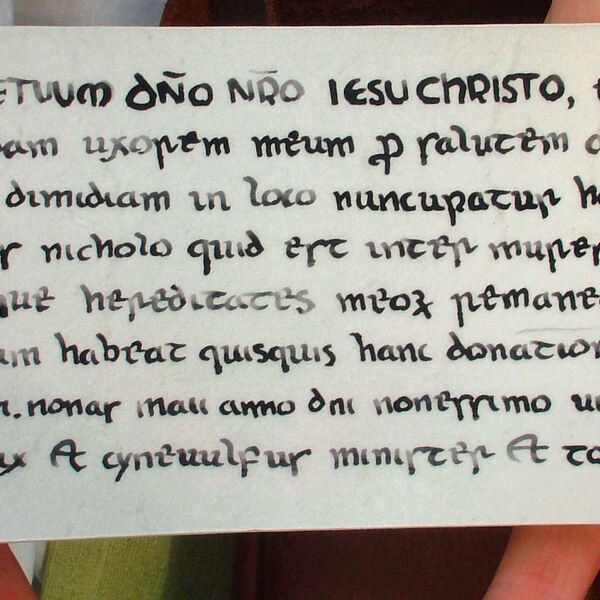 ETUUM DÑO NR̃O IESU CHRISTO,
am uxorem meum p salutem
dimidiam in loco nuncupatur h
r nicholo quid est inter murer
que hereditates meoꝝ remane
um habeat quisquis hanc donation
. nonas maii anno dni nonessimo u
x Et cyneuulfus minister Et to